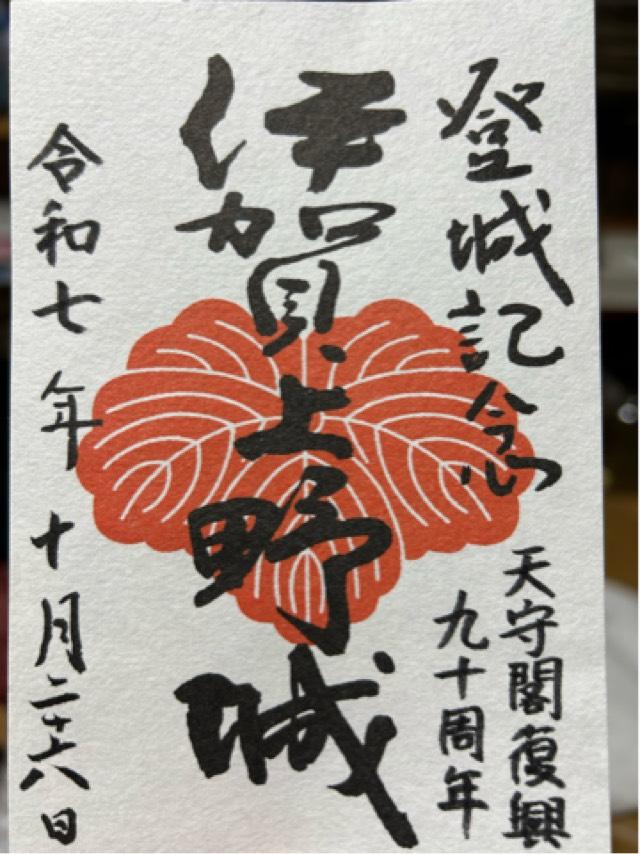 登城記念
天守閣復興
九十周年
伊賀上野城
令和七年十月二十六日